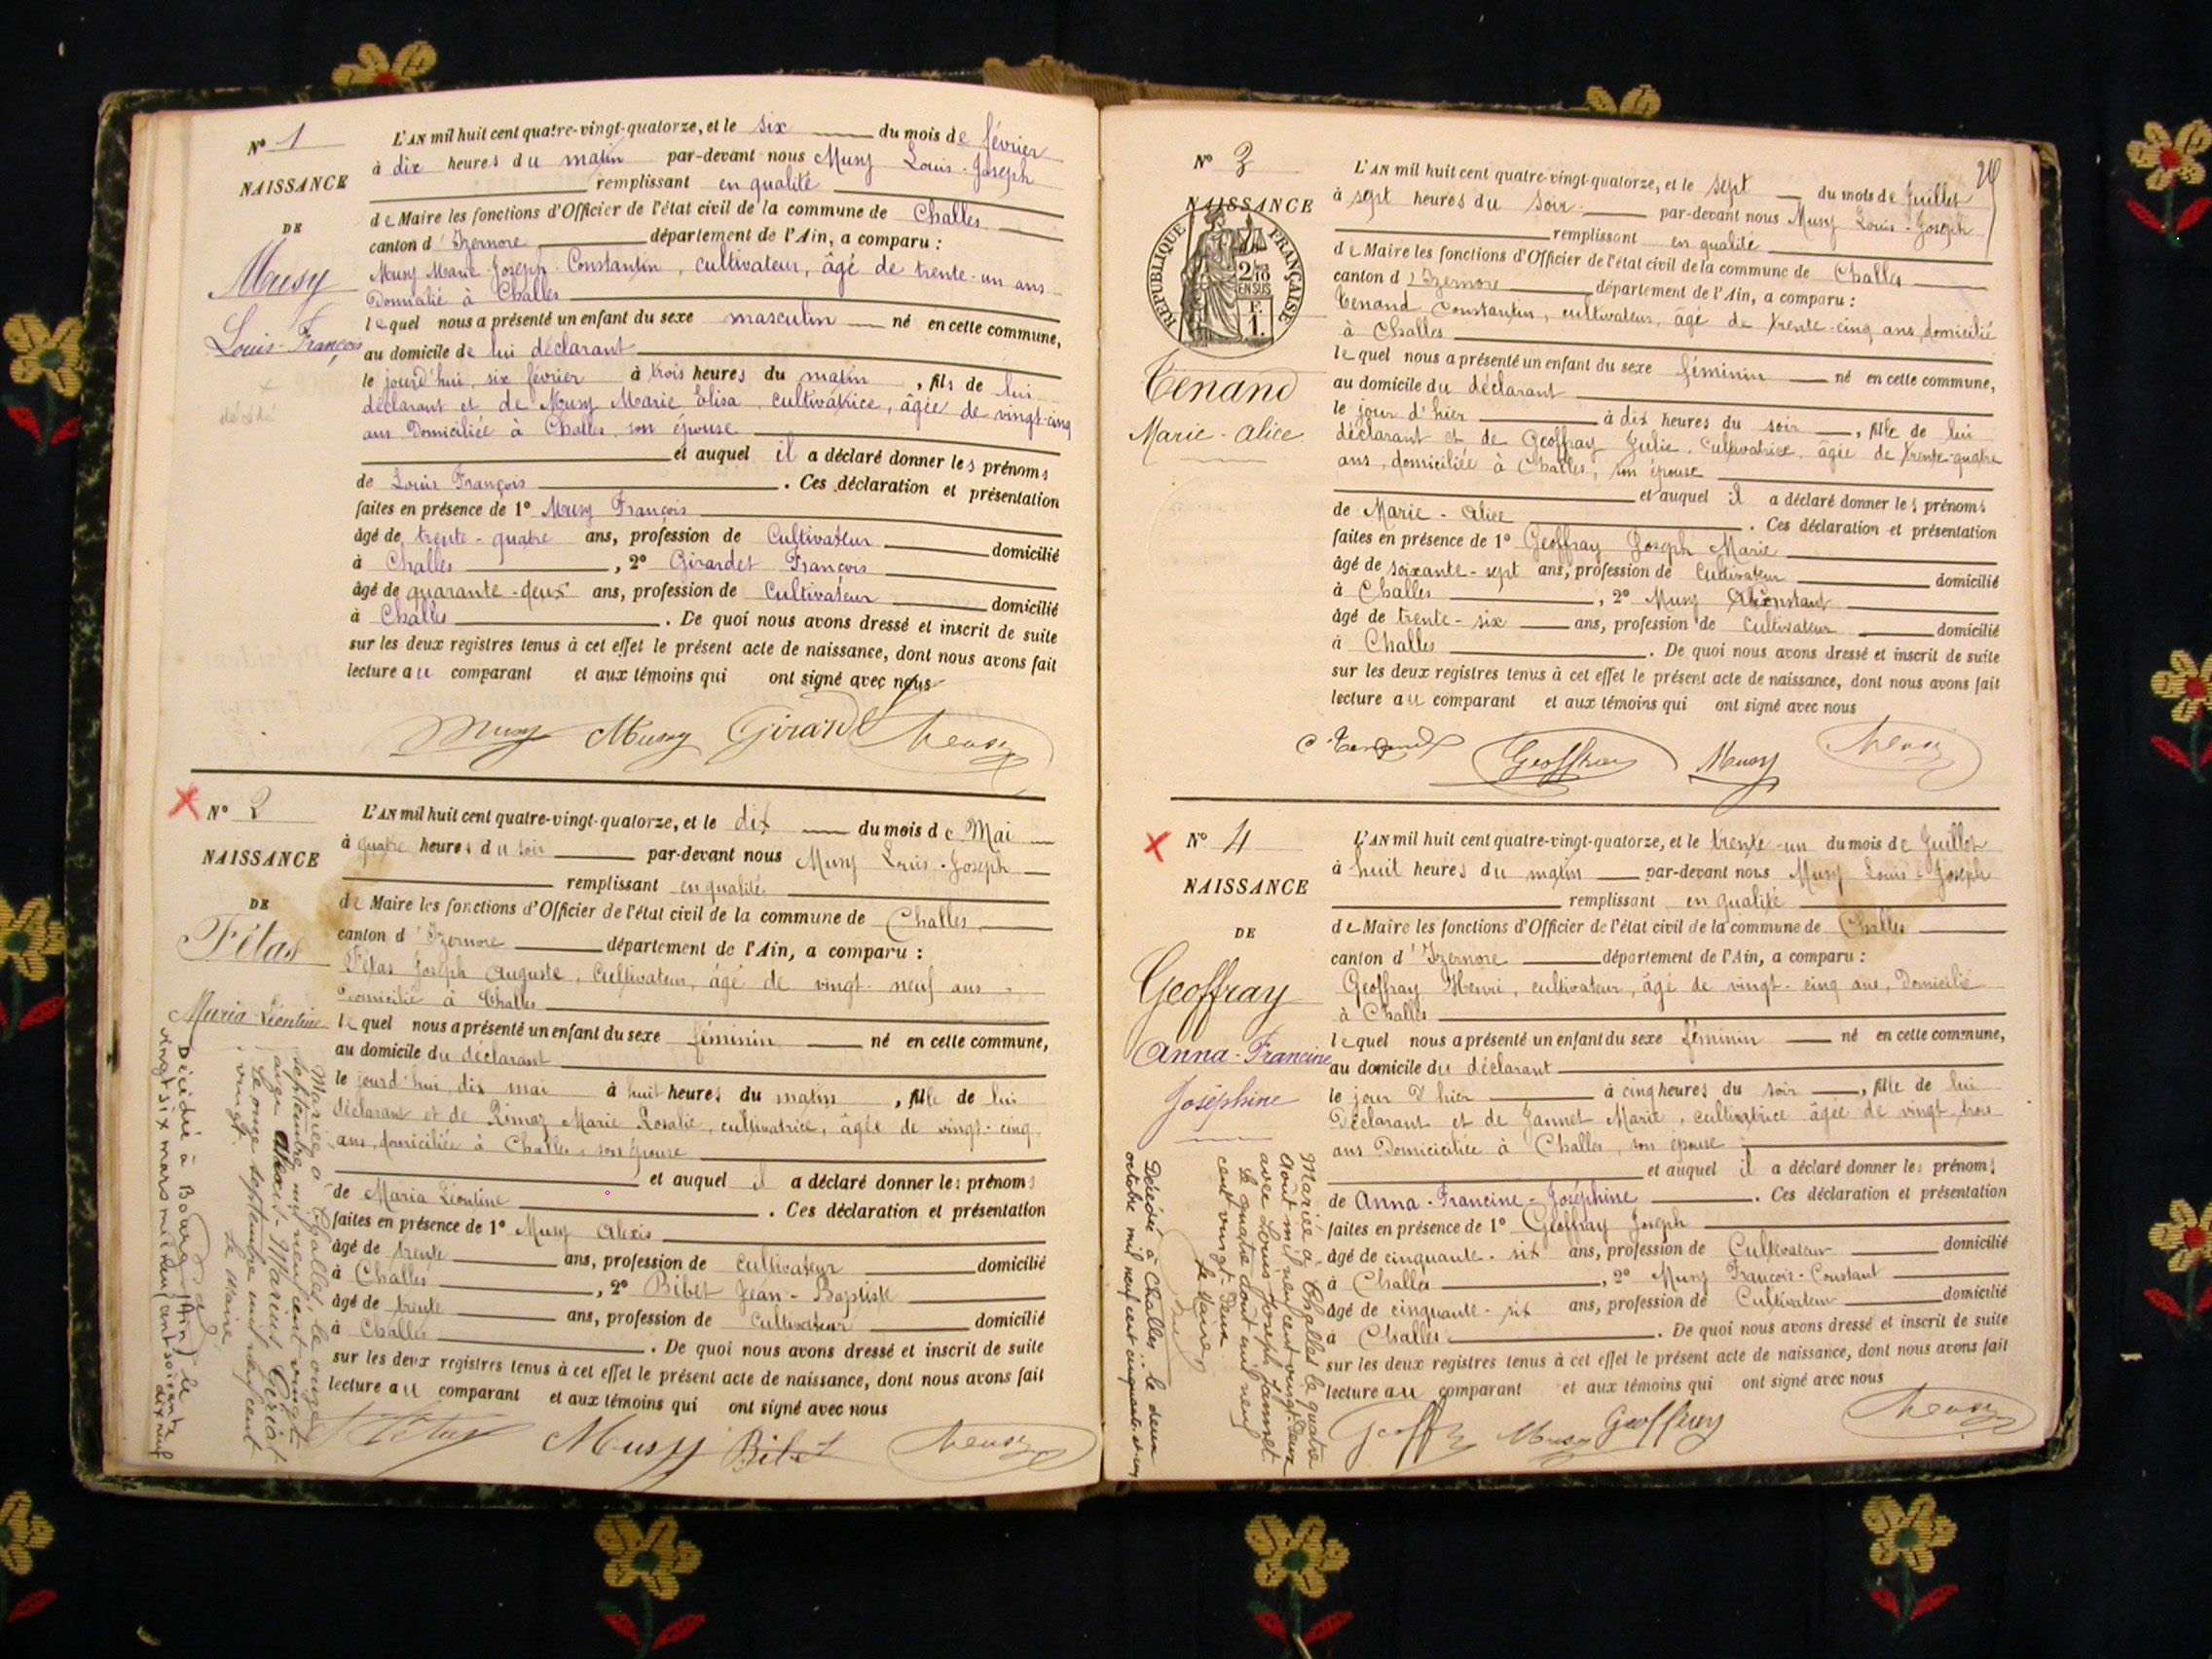 N° 1
NAISSANCE
DE
Musy
Louis-François
décédé
L'AN mil huit cent quatre-vingt-quatorze, et le six du mois de février
à dix heures du matin par-devant nous Musy Louis-Joseph
remplissant en qualité
de Maire les fonctions d'Officier de l'état civil de la commune de Challes
canton d'Izernore département de l'Ain, a comparu :
Musy Marie-Joseph-Constantin, cultivateur, âgé de trente-un ans
Domicilié à Challes
lequel nous a présenté un enfant du sexe masculin né en cette commune,
au domicile de lui déclarant
le jourd'hui, six février à trois heures du matin, fils de lui
déclarant et de Musy Marie Elisa, cultivatrice, âgée de vingt-cinq
ans Domiciliée à Challes, son épouse
et auquel il a déclaré donner les prénoms
de Louis François. Ces déclaration et présentation
faites en présence de 1° Musy François
âgé de trente-quatre ans, profession de Cultivateur domicilié
à Challes, 2° Girardet François
âgé de quarante-deux ans, profession de Cultivateur domicilié
à Challes. De quoi nous avons dressé et inscrit de suite
sur les deux registres tenus à cet effet le présent acte de naissance, dont nous avons fait
lecture au comparant et aux témoins qui ont signé avec nous
Musy Musy Girardet
N° 2
NAISSANCE
DE
Fétas
Maria-Léontine
L'AN mil huit cent quatre-vingt-quatorze, et le dix du mois de Mai
à quatre heures du soir par-devant nous Musy Louis-Joseph
remplissant en qualité
de Maire les fonctions d'Officier de l'état civil de la commune de Challes
canton d'Izernore département de l'Ain, a comparu :
Fétas Joseph Auguste, Cultivateur, âgé de vingt-neuf ans
Domicilié à Challes
lequel nous a présenté un enfant du sexe féminin né en cette commune,
au domicile du déclarant
le jourd'hui, dix mai à huit heures du matin, fille de lui
déclarant et de Marie Rosalie, cultivatrice, âgée de vingt-cinq
ans, domiciliée à Challes, son épouse
et auquel il a déclaré donner les prénoms
de Maria Léontine. Ces déclaration et présentation
faites en présence de 1° Musy Alexis
âgé de trente ans, profession de cultivateur domicilié
à Challes, 2° Bibet Jean-Baptiste
âgé de trente ans, profession de Cultivateur domicilié
à Challes. De quoi nous avons dressé et inscrit de suite
sur les deux registres tenus à cet effet le présent acte de naissance, dont nous avons fait
lecture au comparant et aux témoins qui ont signé avec nous
Fétas Musy Bibet
Mariée à Challes, le onze
septembre mil neuf cent vingt
avec Alexis-Marius
Le onze septembre mil neuf cent
vingt.
Le Maire
Décédée à Bourg (Ain) le
vingt six mars mil neuf cent soixante
dix neuf
N° 3
24
NAISSANCE
RÉPUBLIQUE FRANÇAISE
2/10
EN SUS
F.
1.
Tenand
Marie-Alice
L'AN mil huit cent quatre-vingt-quatorze, et le sept du mois de Juillet
à sept heures du soir par-devant nous Musy Louis-Joseph
remplissant en qualité
de Maire les fonctions d'Officier de l'état civil de la commune de Challes
canton d'Izernore département de l'Ain, a comparu :
Tenand Constantin, cultivateur, âgé de trente-cinq ans, domicilié
à Challes
lequel nous a présenté un enfant du sexe féminin né en cette commune,
au domicile du déclarant
le jour d'hier à dix heures du soir, fille de lui
déclarant et de Geoffray Julie, Cultivatrice, âgée de trente-quatre
ans, domiciliée à Challes, son épouse
et auquel il a déclaré donner les prénoms
de Marie-Alice. Ces déclaration et présentation
faites en présence de 1° Geoffray Joseph Marie
âgé de soixante-sept ans, profession de Cultivateur domicilié
à Challes, 2° Musy
âgé de trente-six ans, profession de Cultivateur domicilié
à Challes. De quoi nous avons dressé et inscrit de suite
sur les deux registres tenus à cet effet le présent acte de naissance, dont nous avons fait
lecture au comparant et aux témoins qui ont signé avec nous
C Tenand Geoffray Musy
N° 4
NAISSANCE
DE
Geoffray
Anna-Francine
Joséphine
L'AN mil huit cent quatre-vingt-quatorze, et le trente-un du mois de Juillet
à huit heures du matin par-devant nous Musy Louis-Joseph
remplissant en qualité
de Maire les fonctions d'Officier de l'état civil de la commune de Challes
canton d'Izernore département de l'Ain, a comparu :
Geoffray Henri, cultivateur, âgé de vingt-cinq ans, Domicilié
à Challes
lequel nous a présenté un enfant du sexe féminin né en cette commune,
au domicile du déclarant
le jour d'hier à cinq heures du soir, fille de lui
Déclarant et de Jannet Marie, cultivatrice âgée de vingt-trois
ans Domiciliée à Challes, son épouse
et auquel il a déclaré donner les prénoms
de Anna-Francine-Joséphine. Ces déclaration et présentation
faites en présence de 1° Geoffray Joseph
âgé de cinquante-six ans, profession de Cultivateur domicilié
à Challes, 2° Musy François-Constant
âgé de cinquante-six ans, profession de Cultivateur domicilié
à Challes. De quoi nous avons dressé et inscrit de suite
sur les deux registres tenus à cet effet le présent acte de naissance, dont nous avons fait
lecture au comparant et aux témoins qui ont signé avec nous
Musy Geoffray
Mariée à Challes le quatre
Août mil neuf cent vingt-deux
avec Louis Joseph Jannet
Le quatre Août mil neuf
cent vingt deux
Le Maire
Décédée à Challes, le deux
octobre mil neuf cent cinquante